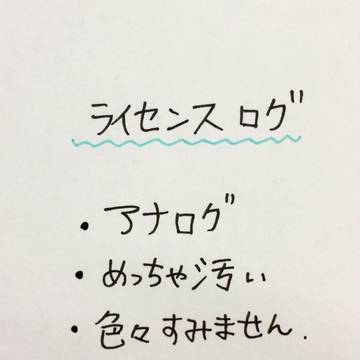 ライセンスログ
・アナログ
・めっちゃ汚い
・色々すみません.